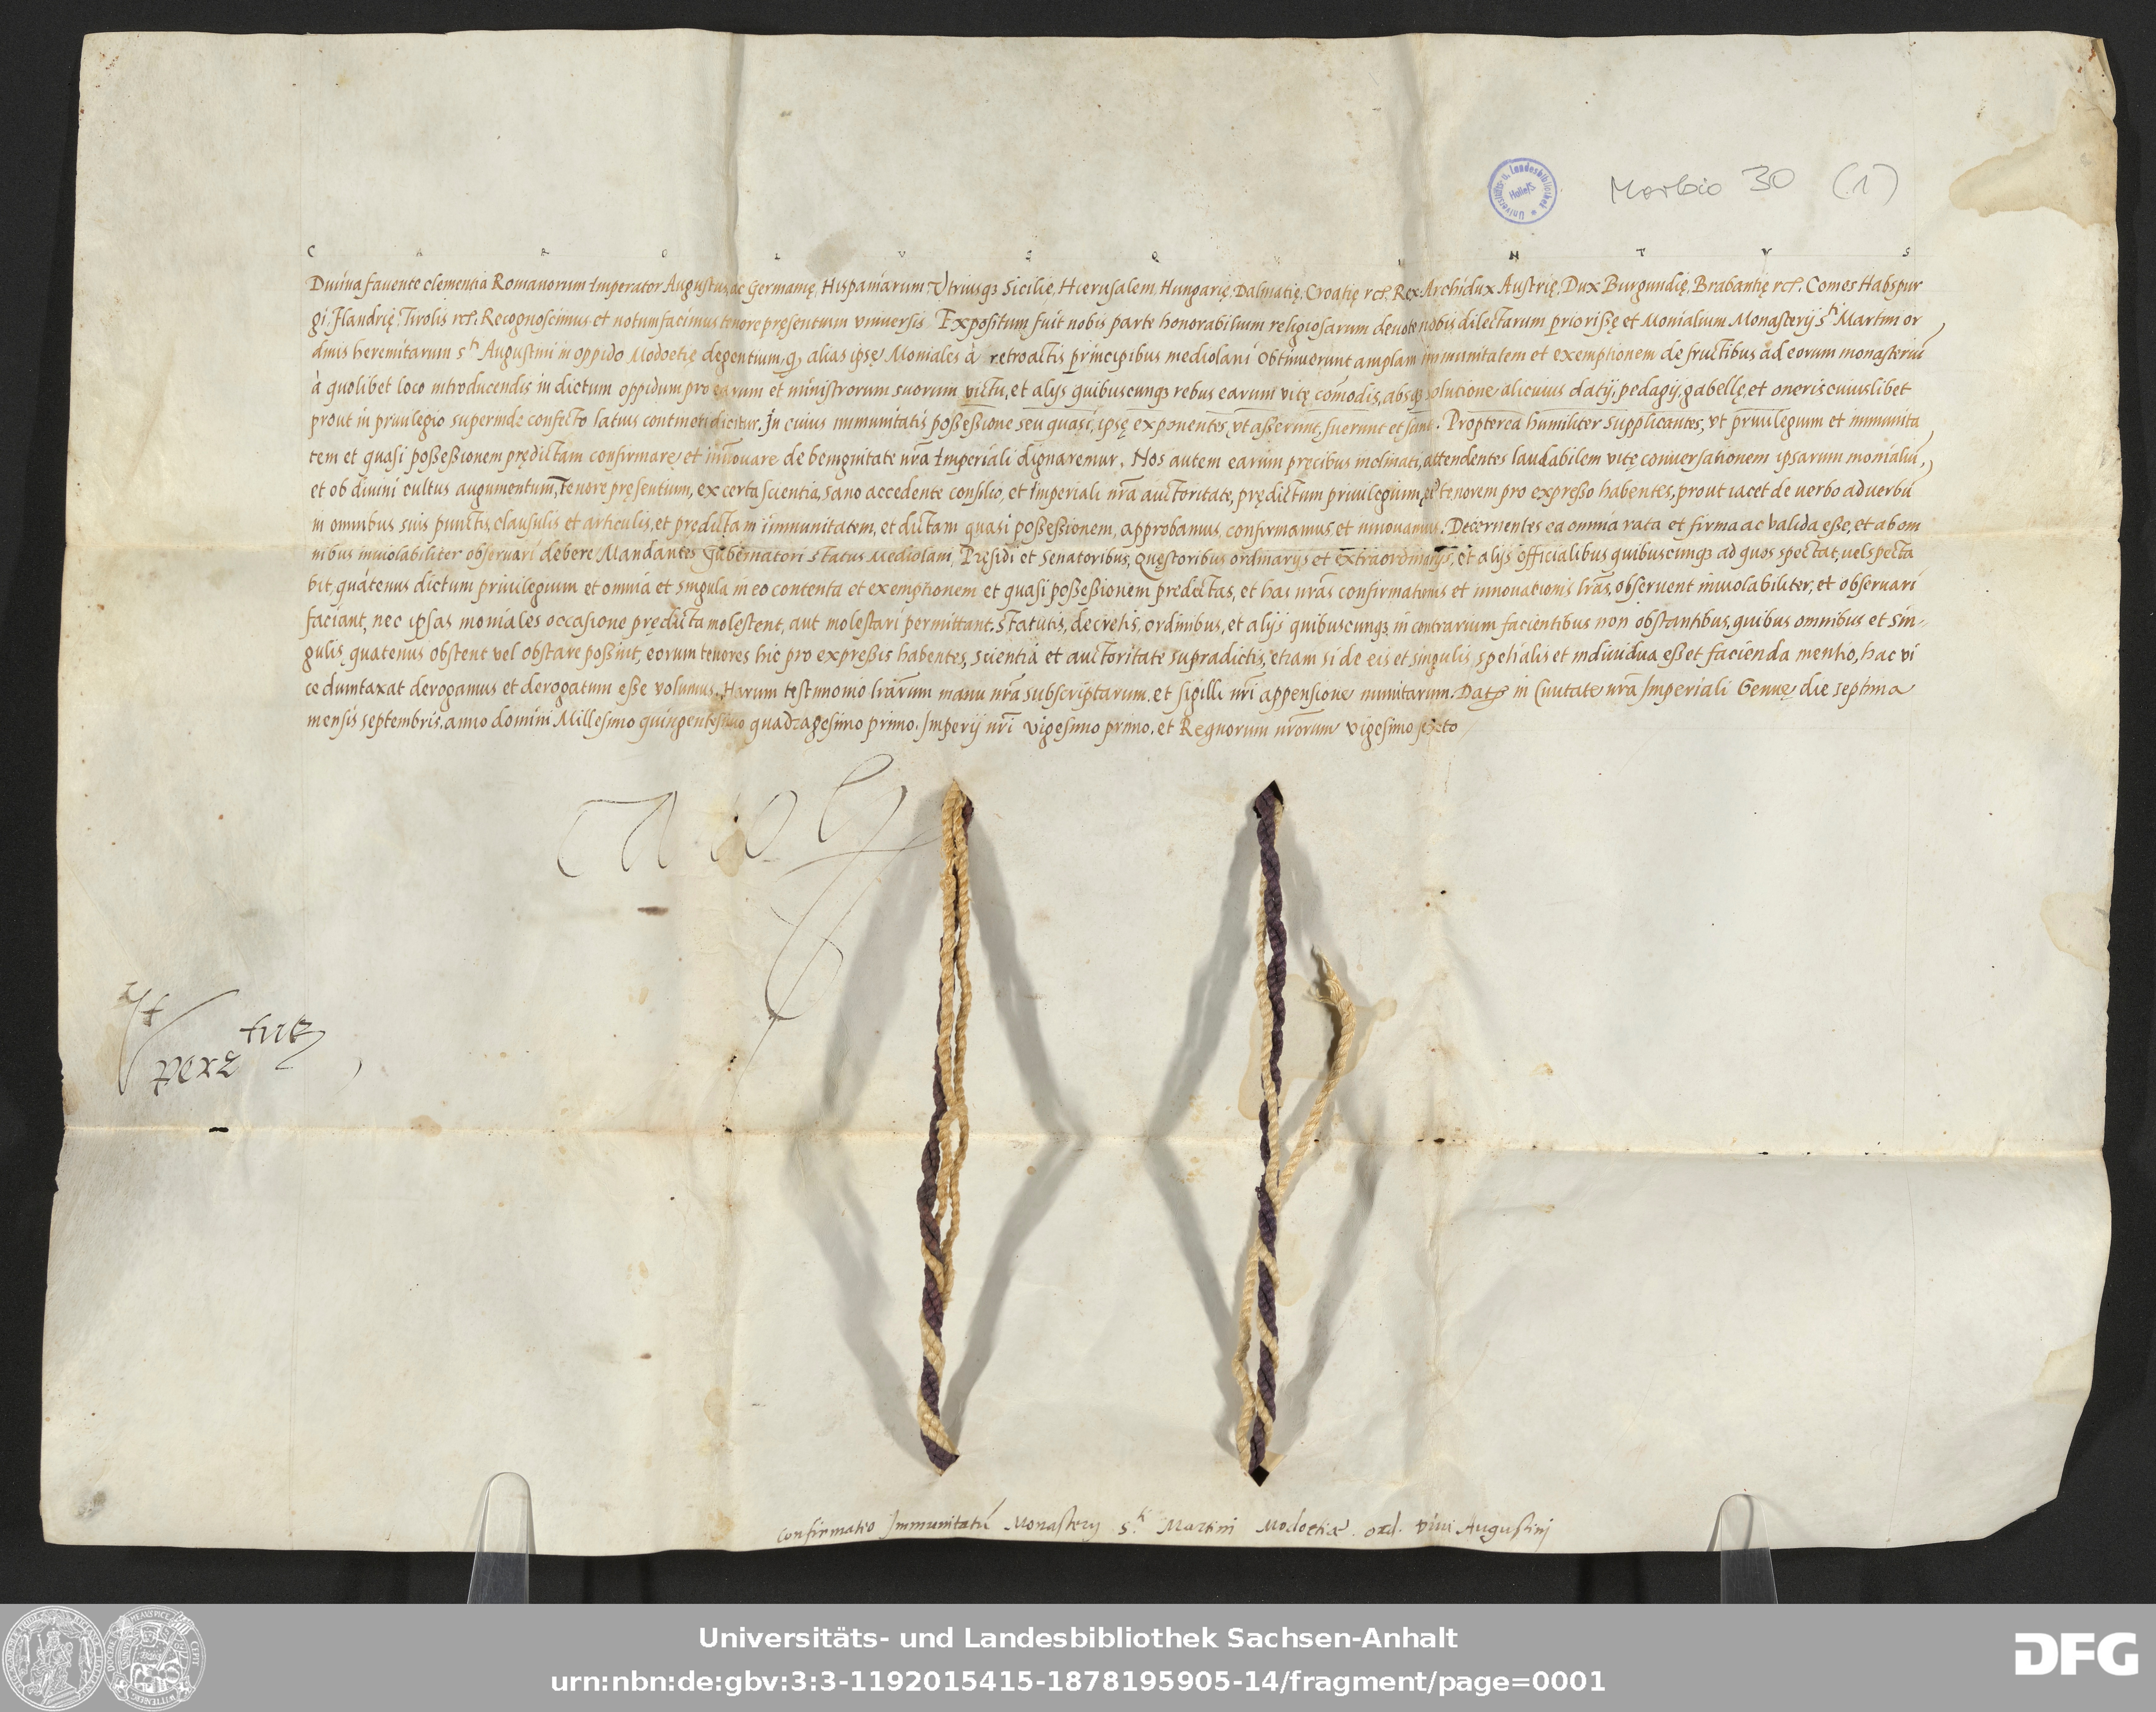 Morbio 30 (1)
Universitäts- u. Landesbibliothek Halle/S.
C A R O L V S Q V I N T V S
Diuina favente clementia Romanorum Imperator Augustus, ac Germanię, Hispaniarum, Vtriusqȝ Sicilię, Hierusalem, Hungarię, Dalmatię, Croatię rcᵗ. Rex Archidux Austrię, Dux Burgundię, Brabantię rcᵗ. Comes Habspur
gi, Flandrię, Tirolis rcᵗ. Recognoscimus et notum facimus tenore pręsentium vniuersis. Expositum fuit nobis parte honorabilium religiosarum deuote nobis dilectarum priorissę et Monialium Monasterij sᵗⁱ Martini or
dinis heremitarum sᵗⁱ Augustini in oppido Modoetię degentium, ꝙ alias ipsę Moniales à retroactis principibus mediolani obtinuerunt amplam immunitatem et exemptionem de fructibus ad eorum monasteriū
à quolibet loco introducendis in dictum oppidum pro earum et ministrorum suorum victu, et alijs quibuscunqȝ rebus earum vitę com̄odis, absqȝ solutione alicuius datij, pedagij, gabellę, et oneris cuiuslibet
prout in priuilegio superinde confecto latius contineri dicitur. In cuius immunitatis possessione seu quasi, ipsę exponentes, vt asserunt, fuerunt et sunt. Propterea humiliter supplicantes, vt priuilegium et immunita
tem et quasi possessionem prędictam confirmare, et innouare de benignitate nr̄a Imperiali dignaremur. Nos autem earum precibus inclinati, attendentes laudabilem vitę conuersationem ipsarum monialiū,
et ob diuini cultus augumentum, tenore pręsentium, ex certa scientia, sano accedente consilio, et Imperiali nr̄a auctoritate, prędictum priuilegium, eiꝰ tenorem pro expresso habentes, prout iacet de uerbo ad uerbū
in omnibus suis punctis, clausulis et articulis, et predictam immunitatem, et dictam quasi possessionem, approbamus, confirmamus, et innouamus. Decernentes ea omnia rata et firma ac valida esse, et ab om
nibus inuiolabiliter obseruari debere. Mandantes Gubernatori status Mediolani, Pręsidi et Senatoribus, Quęstoribus ordinarijs et extraordinarijs, et alijs officialibus quibuscunqȝ ad quos spectat, uel specta
bit, quátenus dictum priuilegium et omnia et singula in eo contenta et exemptionem et quasi possessionem predictas, et has nr̄as confirmationis et innouationis lr̄as, obseruent inuiolabiliter, et obseruari
faciant, nec ipsas moniales occasione prędicta molestent, aut molestari permittant. Statutis, decretis, ordinibus, et alijs quibuscunqȝ in contrarium facientibus non obstantibus, quibus omnibus et sin-
gulis, quatenus obstent vel obstare possint, eorum tenores hic pro expressis habentes, scientia et auctoritate supradictis, etiam si de eis et singulis, spetialis et indiuidua esset facienda mentio, hac vi
ce dumtaxat derogamus et derogatum esse volumus. Harum testimonio lr̄arum manu nr̄a subscriptarum, et sigilli nr̄i appensione munitarum. Datꝭ in Ciuitate nr̄a Imperiali Genuę die septima
mensis septembris. anno domini Millesimo quingentesimo quadragesimo primo. Imperij nr̄i vigesimo primo. et Regnorum nr̄orum vigesimo sexto
Confirmatio Immunitatū Monasterij s.ᵗⁱ Martini Modoetiæ. ord. Diui Augustinj
Universitäts- und Landesbibliothek Sachsen-Anhalt
urn:nbn:de:gbv:3:3-1192015415-1878195905-14/fragment/page=0001
DFG